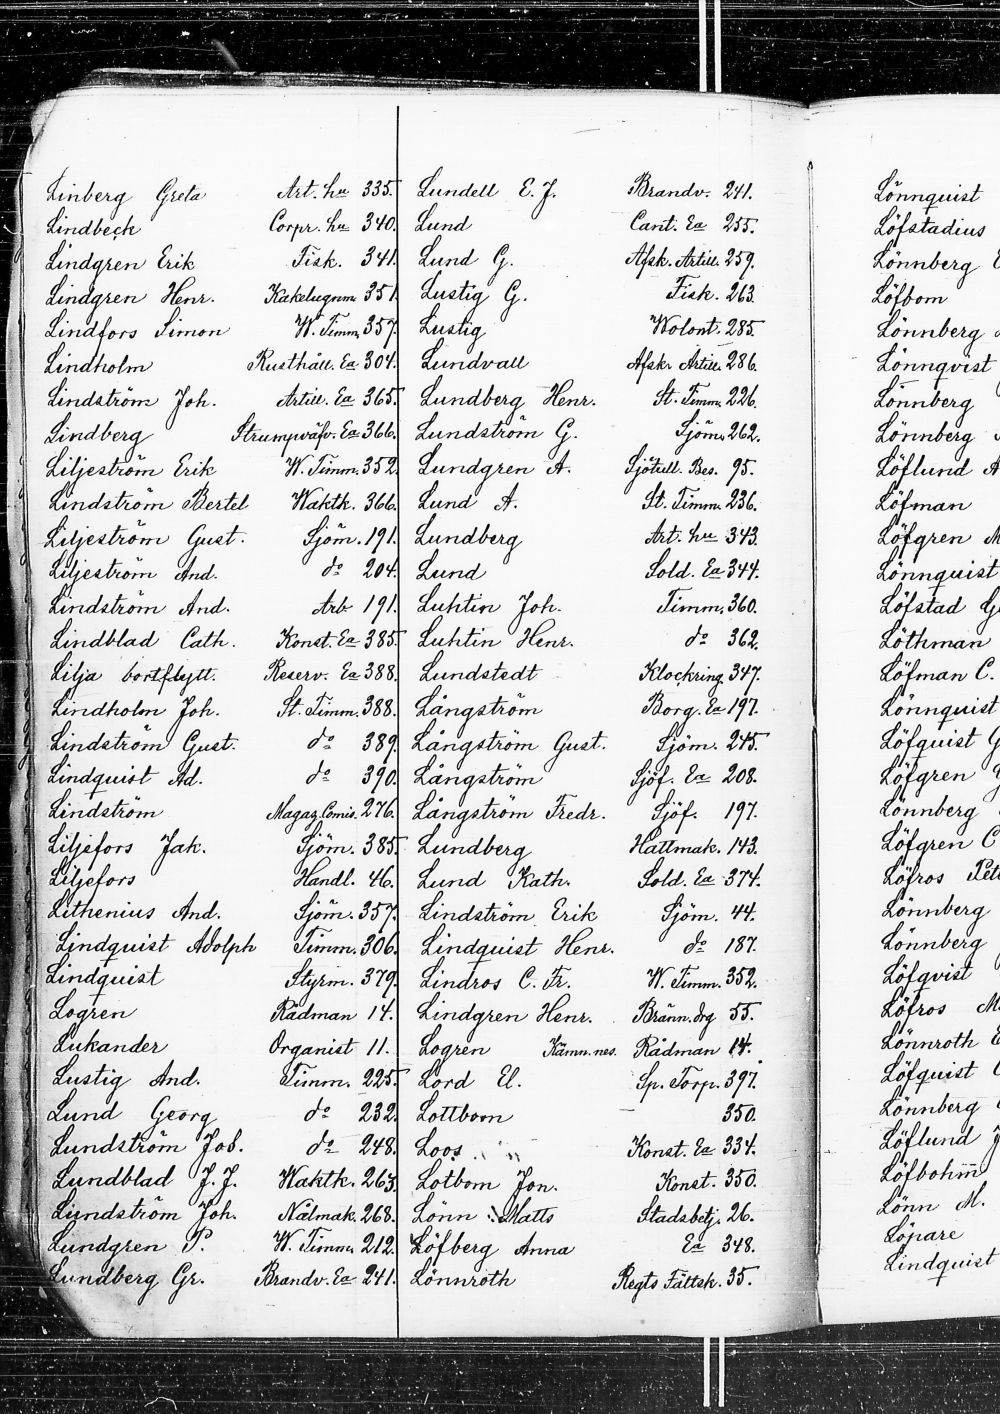 Linberg Greta Art. hu 335.
Lindbeck Corpr. hu 340.
Lindgren Erik Fisk. 341.
Lindgren Henr. Kakelugnm. 351
Lindfors Simon W. Timm. 357.
Lindholm Rusthåll. Ea 304.
Lindström Joh. Artill. Ea 365.
Lindberg Strumpväfv. Ea 366.
Liljeström Erik W. Timm. 352.
Lindström Bertel Waktk. 366.
Liljeström Gust. Sjöm. 191.
Liljeström And. do 204.
Lindström And. Arb 191.
Lindblad Cath. Konst. Ea 385.
Lilja bortflytt. Reserv. Ea 388.
Lindholm Joh. St. Timm. 388.
Lindström Gust. do 389.
Lindquist Ad. do 390.
Lindström Magaz. Comis. 276.
Liljefors Jak. Sjöm. 385.
Liljefors Handl. 46.
Lithenius And. Sjöm. 357.
Lindquist Adolph Timm. 306.
Lindquist Styrm. 379.
Logren Rådman 14.
Lukander Organist 11.
Lustig And. Timm. 225.
Lund Georg do 232.
Lundström Job. do 248.
Lundblad J. J. Waktk. 263.
Lundström Joh. Nålmak. 268.
Lundgren P. W. Timm. 212.
Lundberg Gr. Brandv. Ea 241.
Lundell E. J. Brandv. 241.
Lund Cant. Ea 255.
Lund G. Afsk. Artill. 259.
Lustig G. Fisk. 263.
Lustig Wolont. 285.
Lundvall Afsk. Artill. 286.
Lundberg Henr. St. Timm. 226.
Lundström G. Sjöm. 262.
Lundgren A. Sjötull. Bes. 95.
Lund A. St. Timm. 236.
Lundberg Art. hu 343.
Lund Sold. Ea 344.
Luhtin Joh. Timm. 360.
Luhtin Henr. do 362.
Lundstedt Klockring. 347.
Långström Borg. Ea 197.
Långström Gust. Sjöm. 245.
Långström Sjöf. Ea 208.
Långström Fredr. Sjöf. 197.
Lundberg Hattmak. 143.
Lund Kath. Sold. Ea 374.
Lindström Erik Sjöm. 44.
Lindquist Henr. do 187.
Lindros C. Fr. W. Timm. 352.
Lindgren Henr. Bränn. drg 55.
Logren Kämn. nes. Rådman 14.
Lord El. Sp. Torp. 397.
Lottbom — 350.
Loos Konst. Ea 334.
Lotbom Jon. Konst. 350.
Lönn Matts Stadsbetj. 26.
Löfberg Anna Ea 348.
Lönnroth Regts Fältsk. 35.
Lönnquist
Löfstadius
Lönnberg
Löfbom
Lönnberg
Lönnqvist
Lönnberg
Lönnberg
Löflund A
Löfman
Löfgren M
Lönnquist
Löfstad G
Löthman
Löfman C.
Lönnquist
Löfquist G
Löfgren
Lönnberg
Löfgren C
Löfros Pet
Lönnberg
Lönnberg
Löfqvist
Löfros M.
Lönnroth E
Löfquist
Lönnberg
Löflund J
Löfbohm
Lönn M.
Löpare
Lindquist